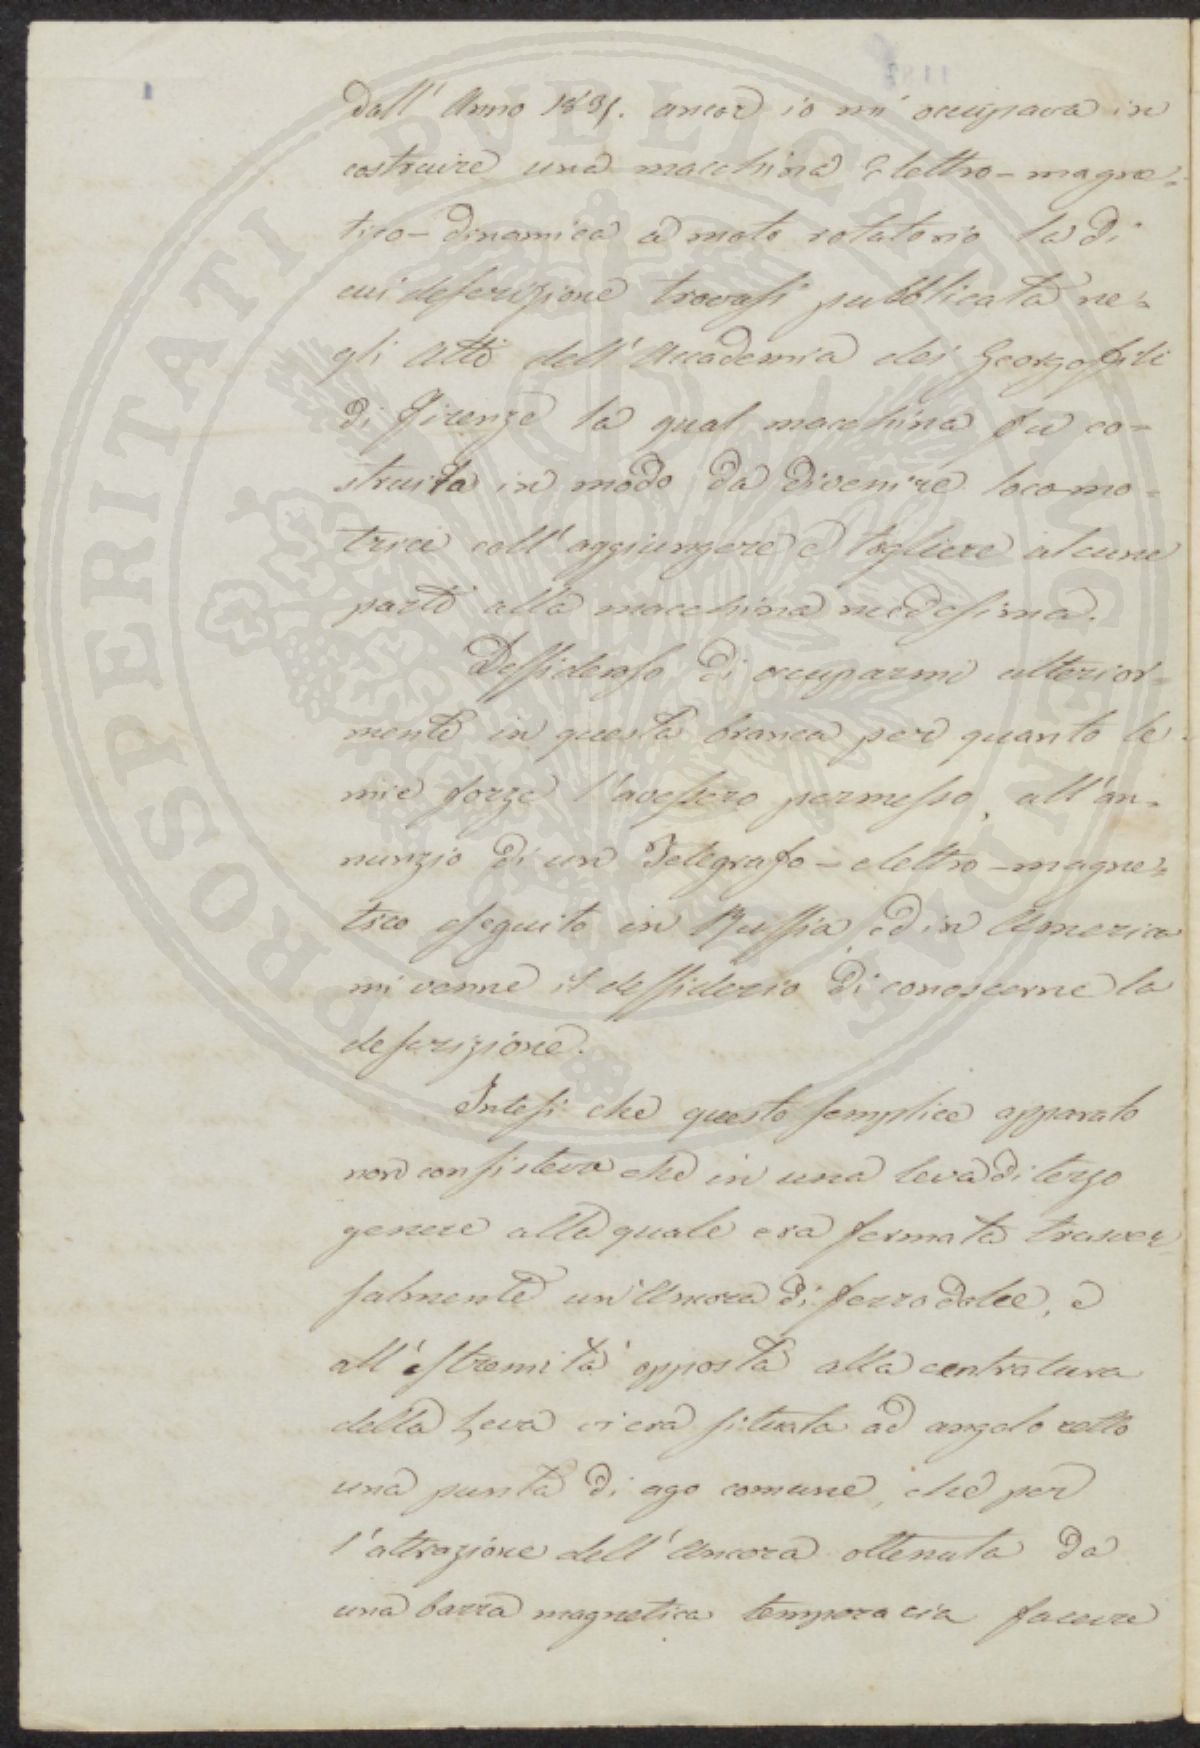 Dall' Anno 1831. ancor io mi occupava in
costruire una macchina Elettro-magne=
tico-dinamica a moto rotatorio la di
cui descrizione trovasi pubblicata ne=
gli Atti dell' Accademia dei Georgofili
di Firenze la qual macchina fu co=
struita in modo da divenire locomo=
trice coll' aggiungere e togliere alcune
parti alla macchina medesima.
Dessideroso di occuparmi ulterior=
mente in questa branca per quanto le
mie forze l'avessero permesso, all'an=
nunzio di un Telegrafo-elettro-magne=
tico eseguito in Russia, ed in America
mi venne il dessiderio di conoscerne la
descrizione.
Intesi che questo semplice apparato
non consisteva che in una leva di terzo
genere alla quale era fermata trasver=
salmente un'Ancora di ferro dolce, e
all'estremità opposta alla centratura
della Leva vi era situata ad angolo retto
una punta di ago comune, che per
l'attrazione dell'Ancora ottenuta da
una barra magnetica temporaria
PROSPERITATI PVBLICAE AVGENDAE